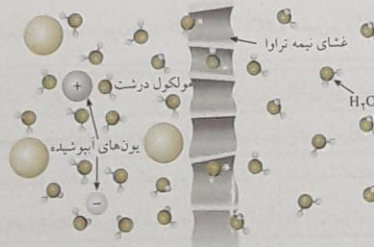 غشای نیمه تراوا
مولکول درشت
H₂O
یون‌های آبپوشیده
+
−